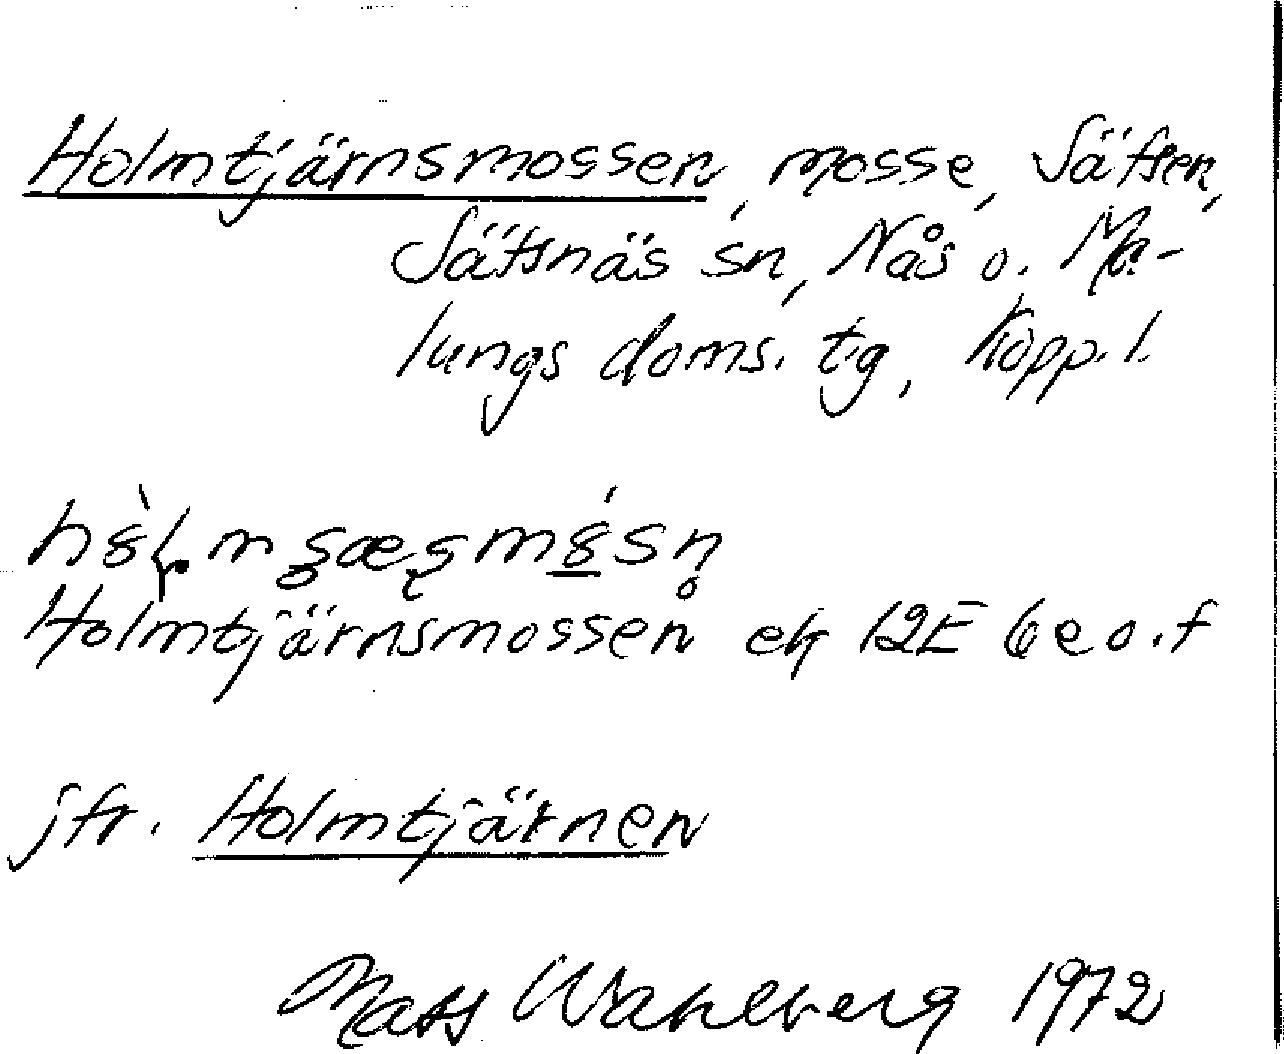 Holmtjärnsmossen, mosse, Säfsen,
Säfsnäs sn, Nås o. Ma-
lungs doms. tg, Kopp. l.
Holmtjärnsmossen ek 12E 6e o. f
jfr. Holmtjärnen
Mats Wahlberg 1972